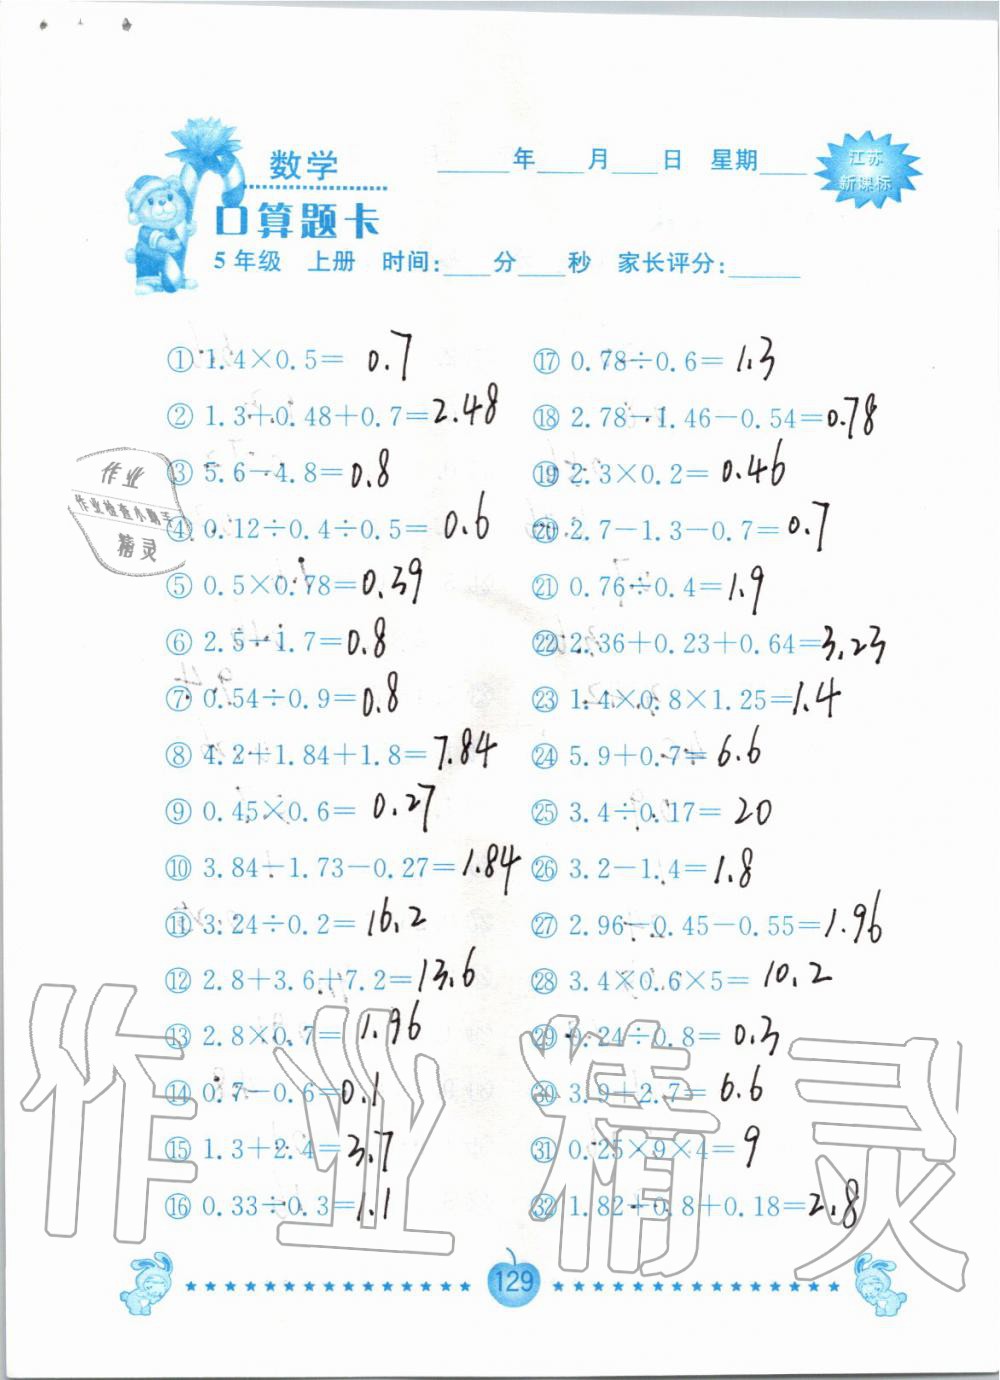 数学
____年____月____日 星期____
江苏
新课标
口算题卡
5年级 上册 时间:____分____秒 家长评分:____
①1.4×0.5= 0.7
②1.3+0.48+0.7=2.48
③5.6-4.8=0.8
④0.12÷0.4÷0.5= 0.6
⑤0.5×0.78=0.39
⑥2.5-1.7=0.8
⑦0.54÷0.9=0.8
⑧4.2+1.84+1.8=7.84
⑨0.45×0.6= 0.27
⑩3.84-1.73-0.27=1.84
⑪3.24÷0.2=16.2
⑫2.8+3.6+7.2=13.6
⑬2.8×0.7= 1.96
⑭0.7-0.6=0.1
⑮1.3+2.4=3.7
⑯0.33÷0.3=1.1
⑰0.78÷0.6= 1.3
⑱2.78-1.46-0.54=0.78
⑲2.3×0.2= 0.46
⑳2.7-1.3-0.7=0.7
㉑0.76÷0.4=1.9
㉒2.36+0.23+0.64=3.23
㉓1.4×0.8×1.25=1.4
㉔5.9+0.7=6.6
㉕3.4÷0.17= 20
㉖3.2-1.4=1.8
㉗2.96-0.45-0.55=1.96
㉘3.4×0.6×5= 10.2
㉙0.24÷0.8= 0.3
㉚3.9+2.7= 6.6
㉛0.25×9×4=9
㉜1.82+0.8+0.18=2.8
作业
作业检查小助手
精灵
作业精灵
129